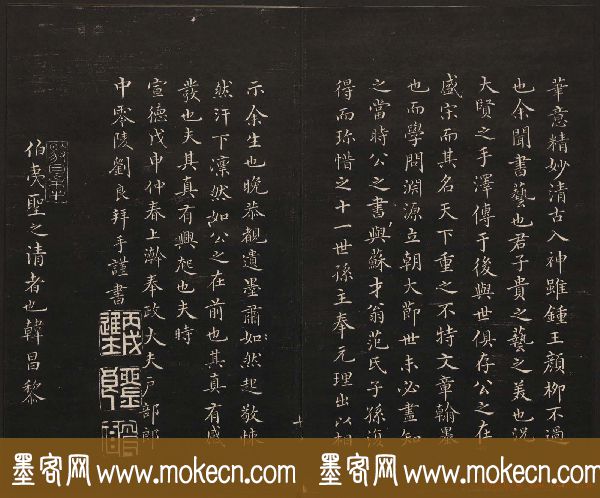 華意精妙清古入神雖鍾王顏柳不過
也余聞書藝也君子貴之藝之美也況
大賢之手澤傳于後與世俱存公之在
盛宋而其名天下重之不特文章翰墨
也而學問淵源立朝大節世未必盡知
之當時公之書與蘇才翁范氏子孫復
得而珎惜之十一世孫主奉元理出以相
示余生也晚恭觀遺墨肅如然起敬悚
然汗下凜然如公之在前也其真有感
發也夫其真有興起也夫時
宣德戊申仲春上澣奉政大夫戶部郎
中零陵劉良拜手謹書
伯夷聖之清者也韓昌黎
墨客网 www.mokecn.com
墨客网 www.mokecn.com